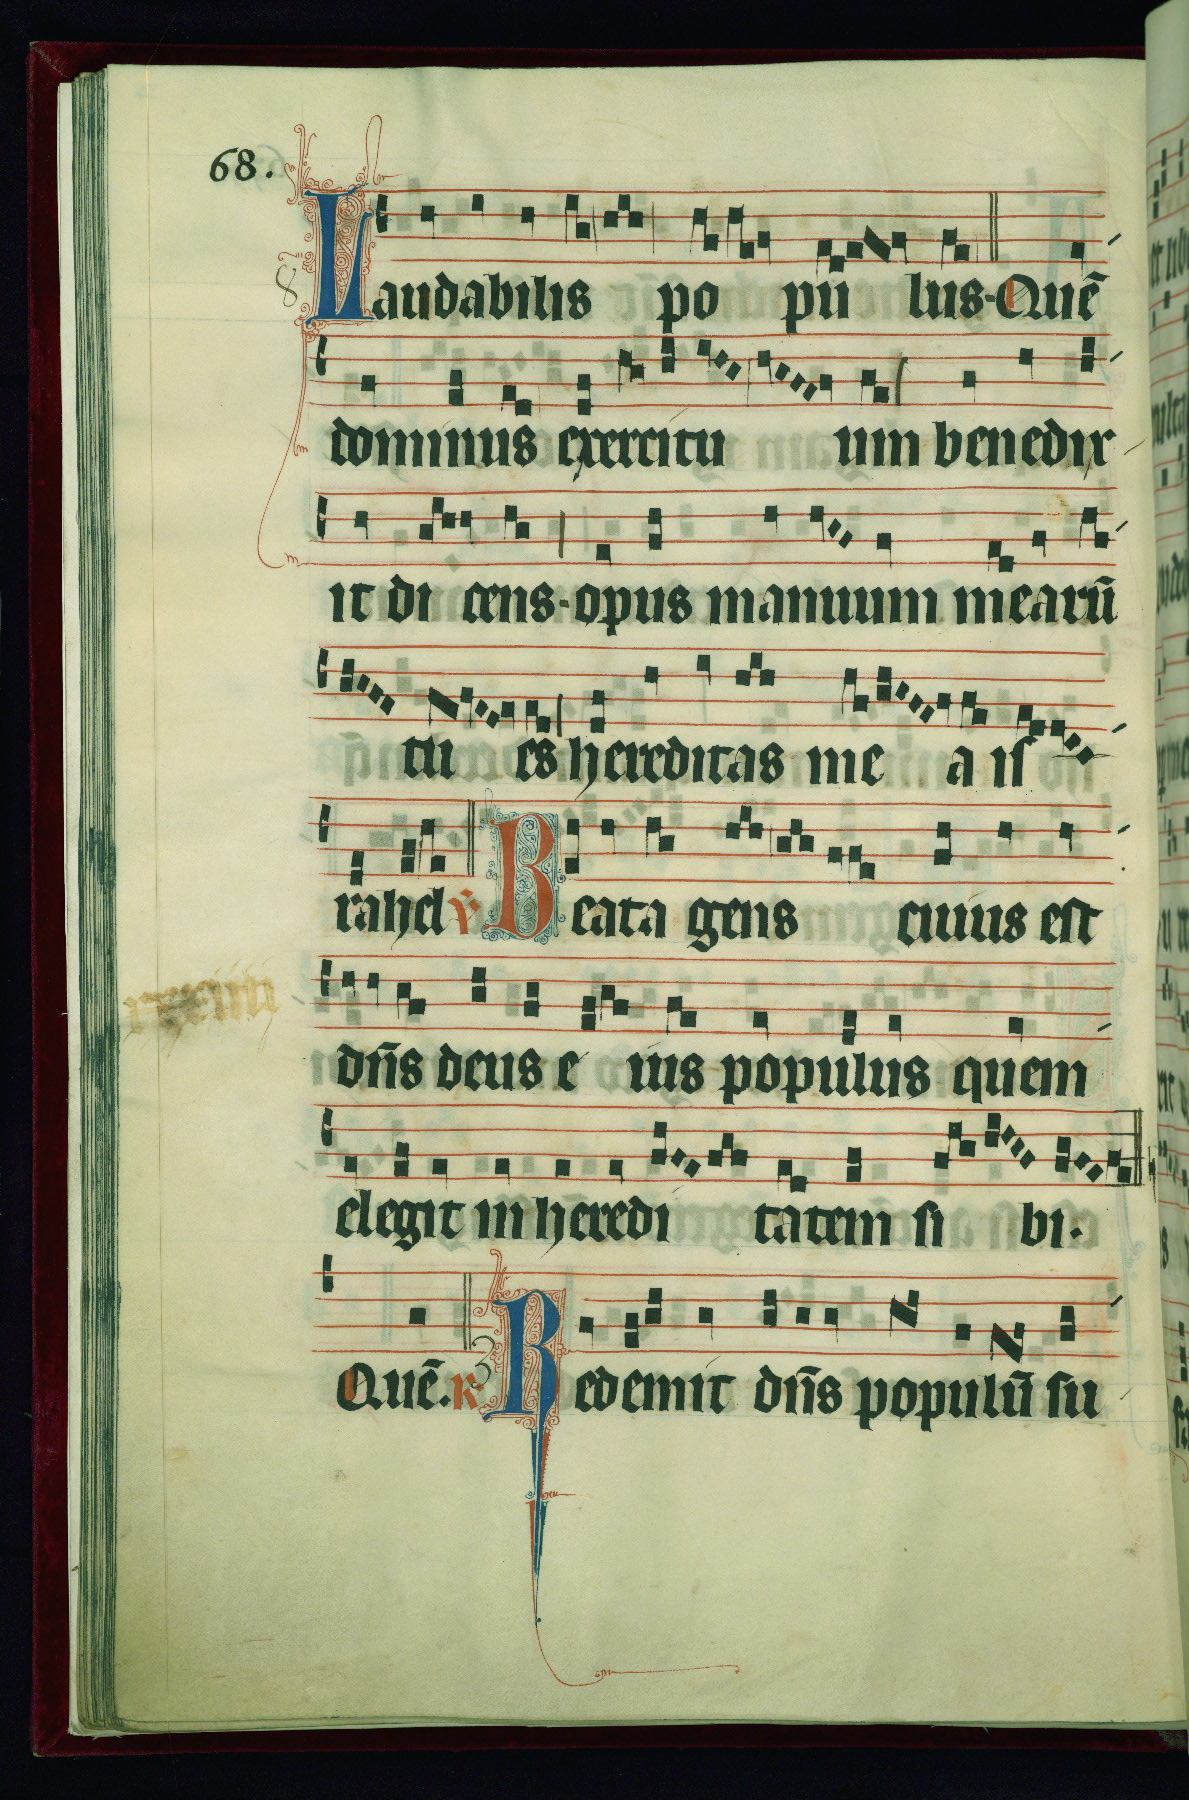 68.
8
Laudabilis po pu lus·Quē
dominus exercitu um benedix
it di cens·opus manuum mearū
tu es hereditas me a is
rahel ℣ Beata gens cuius est
dn̄s deus e ius populus quem
elegit in heredi tatem si bi·
Quē. R 3 Redemit dn̄s populū su